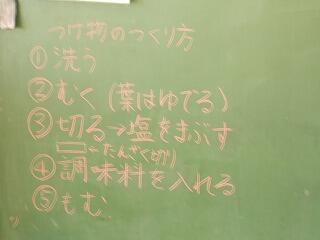 つけ物のつくり方
①洗う
②むく(葉はゆでる)
③切る→塩をまぶす
←たんざく切り
④調味料を入れる
⑤もむ